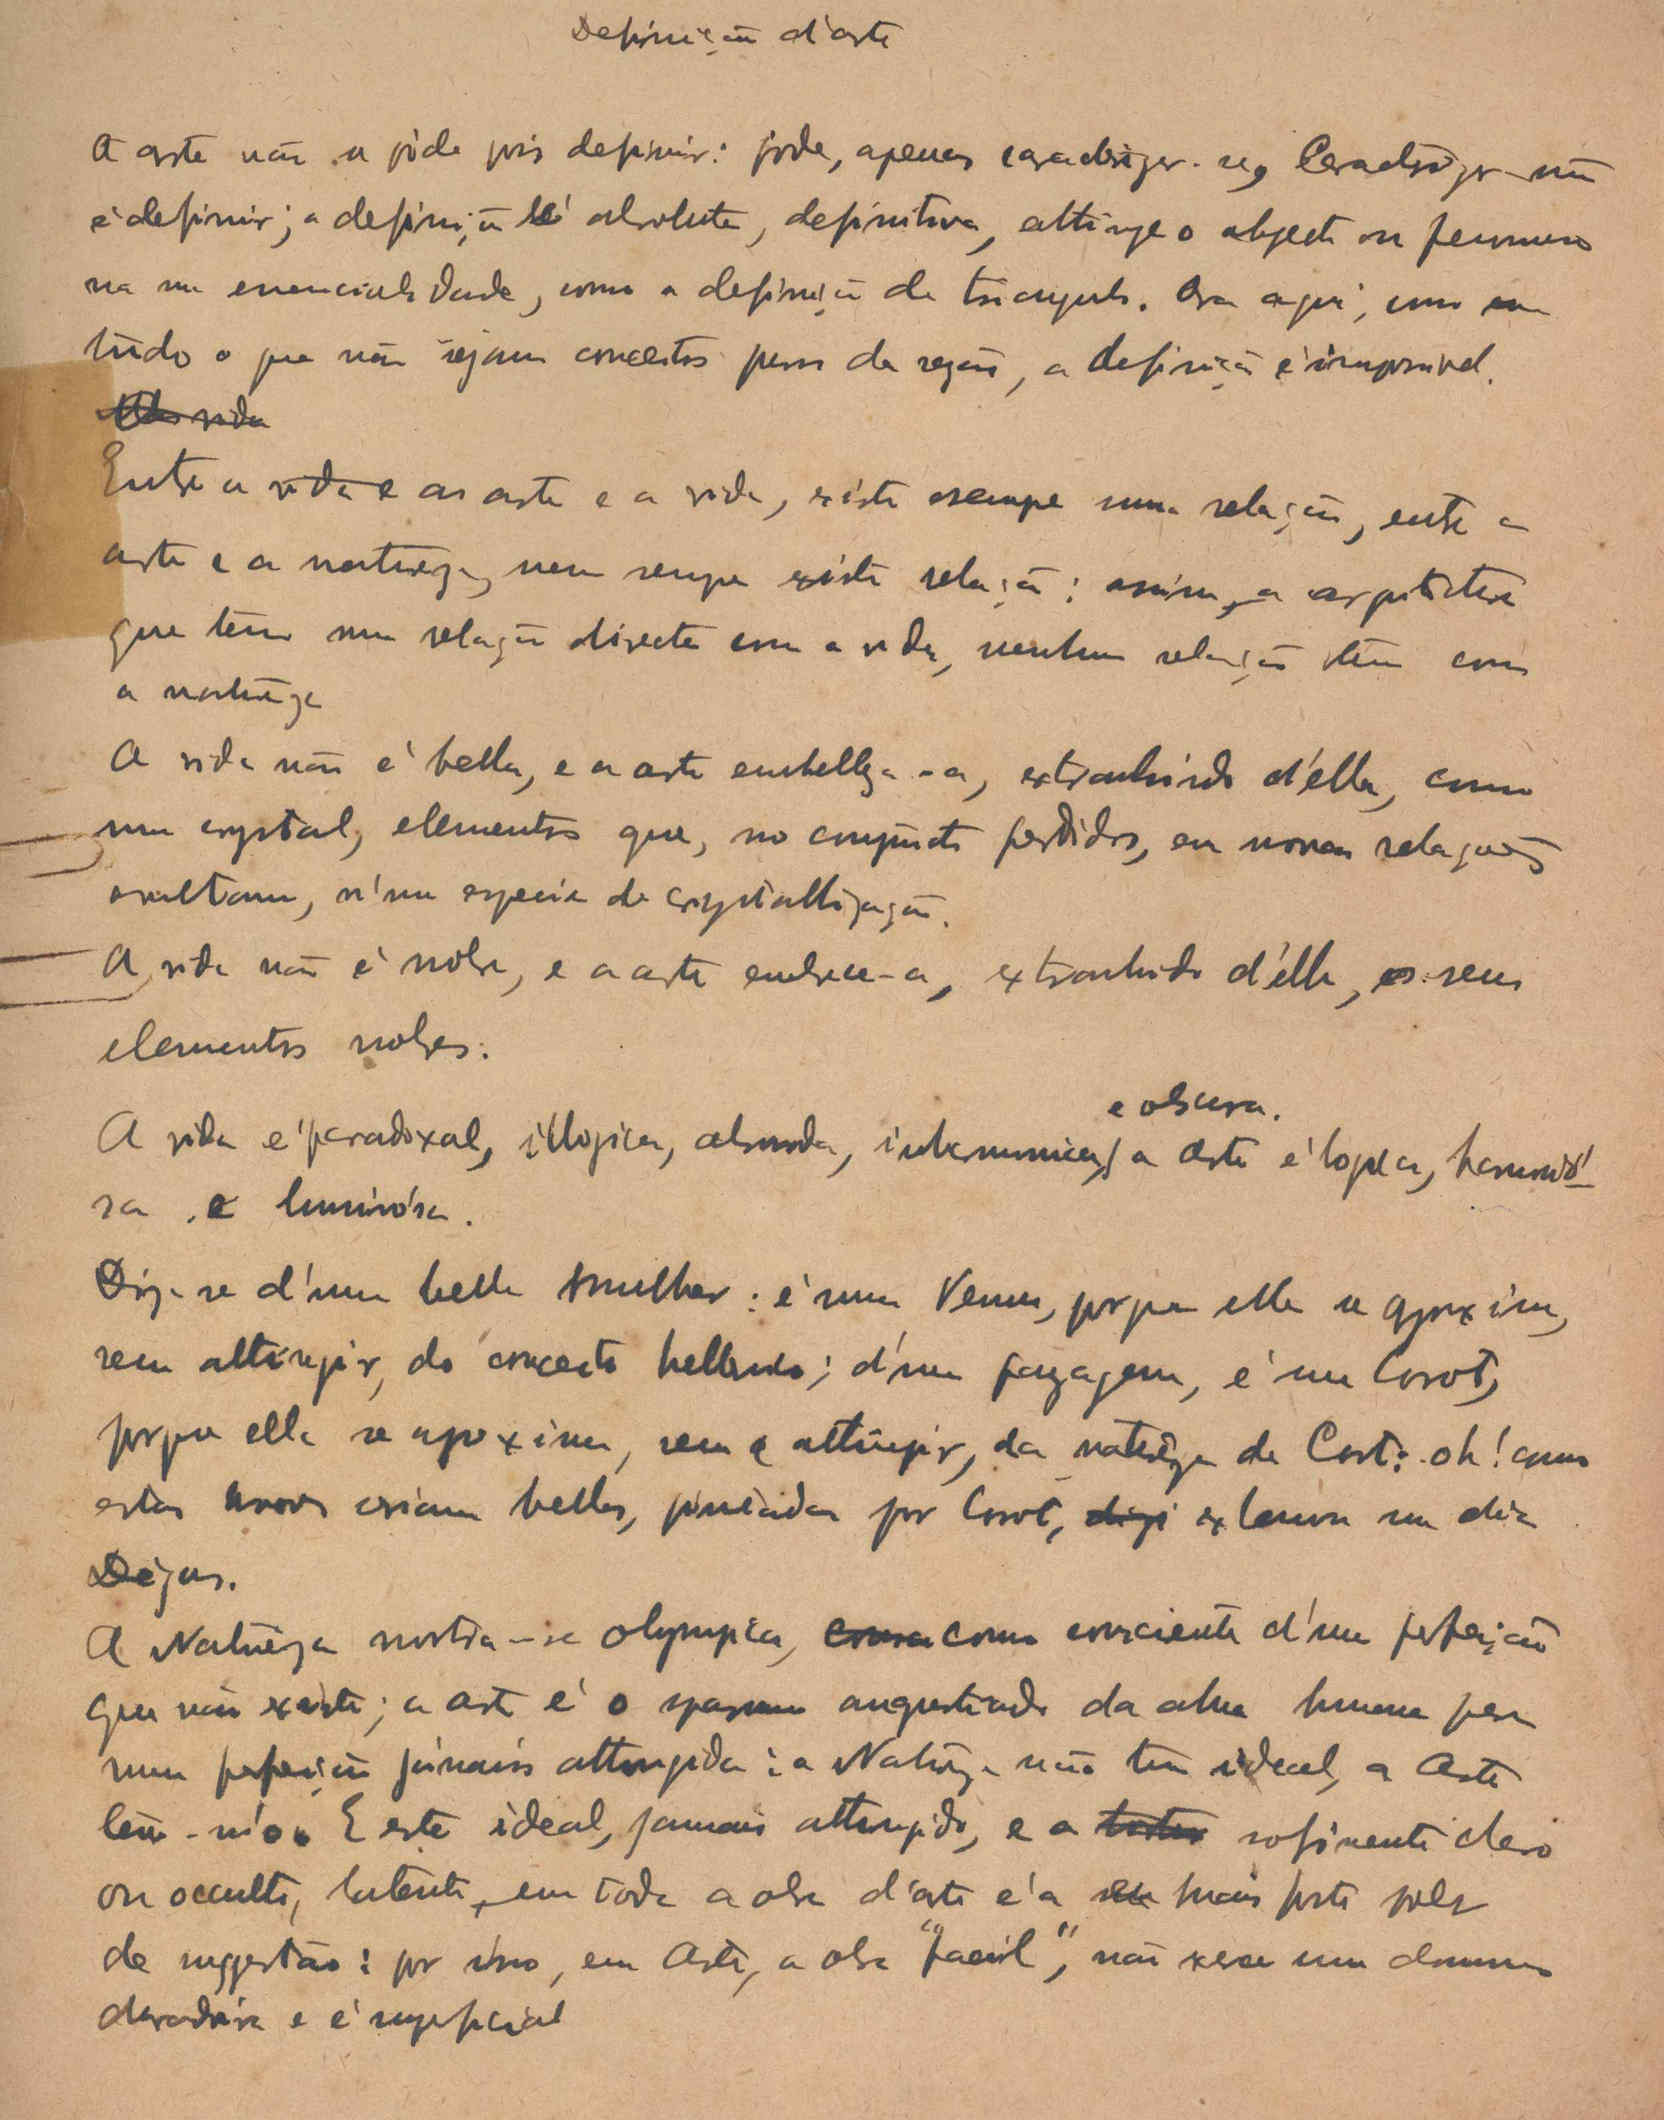 Definição d'arte
A arte não se póde pois definir: póde, apenas caracterizar-se, Caracterizar não
é definir; a definição é absoluta, definitiva, attinge o objecto ou fenomeno
na sua essencialidade, como a definição de triangulo. Ora aqui, como em
tudo o que não sejam conceitos puros da rezão, a definição é impossivel.
vida
Entre a vida e as arte e a vida, existe sempre uma relação, entre a
arte e a natureza, nem sempre existe relação: assim, a arquitectura
que tem uma relação directa com a vida, nenhuma relação têm com
a natureza
A vida não é bella, e a arte embelleza-a, extrahindo d'élla, como
um crystal, elementos que, no conjuncto perdidos, em novas relações
exultam, n'uma especie de crystallização.
A vida não é nobre, e a arte enobrece-a, extrahindo d'élla, os seus
elementos nobres.
e obscura.
A vida é paradoxal, illogica, absurda, a arte é logica, harmonió-
sa e luminósa.
Diz-se d'uma bella mulher: é uma Venus, porque ella se aproxima,
sem attingir, do conceito helleno; d'uma payzagem, é um Corot,
porque ella se aproxima, sem attingir, da natureza de Corot: oh! como
estas arvores seriam bellas, pintadas por Corot, exclamou um dia
Dégas.
A Natureza mostra-se olympica, como consciente d'uma perfeição
que não existe; a arte é o spasmo angustiado da alma humana para
uma perfeição jámais attingida: a Natureza não tem ideal, a Arte
tem-n'o. E este ideal, jamais attingido, e a sofrimento claro
ou occulto, latente, em toda a obra d'arte é a mais forte
de suggestão: por isso, em Arte, a obra "facil", não exerce um dominio
duradoiro e é superficial